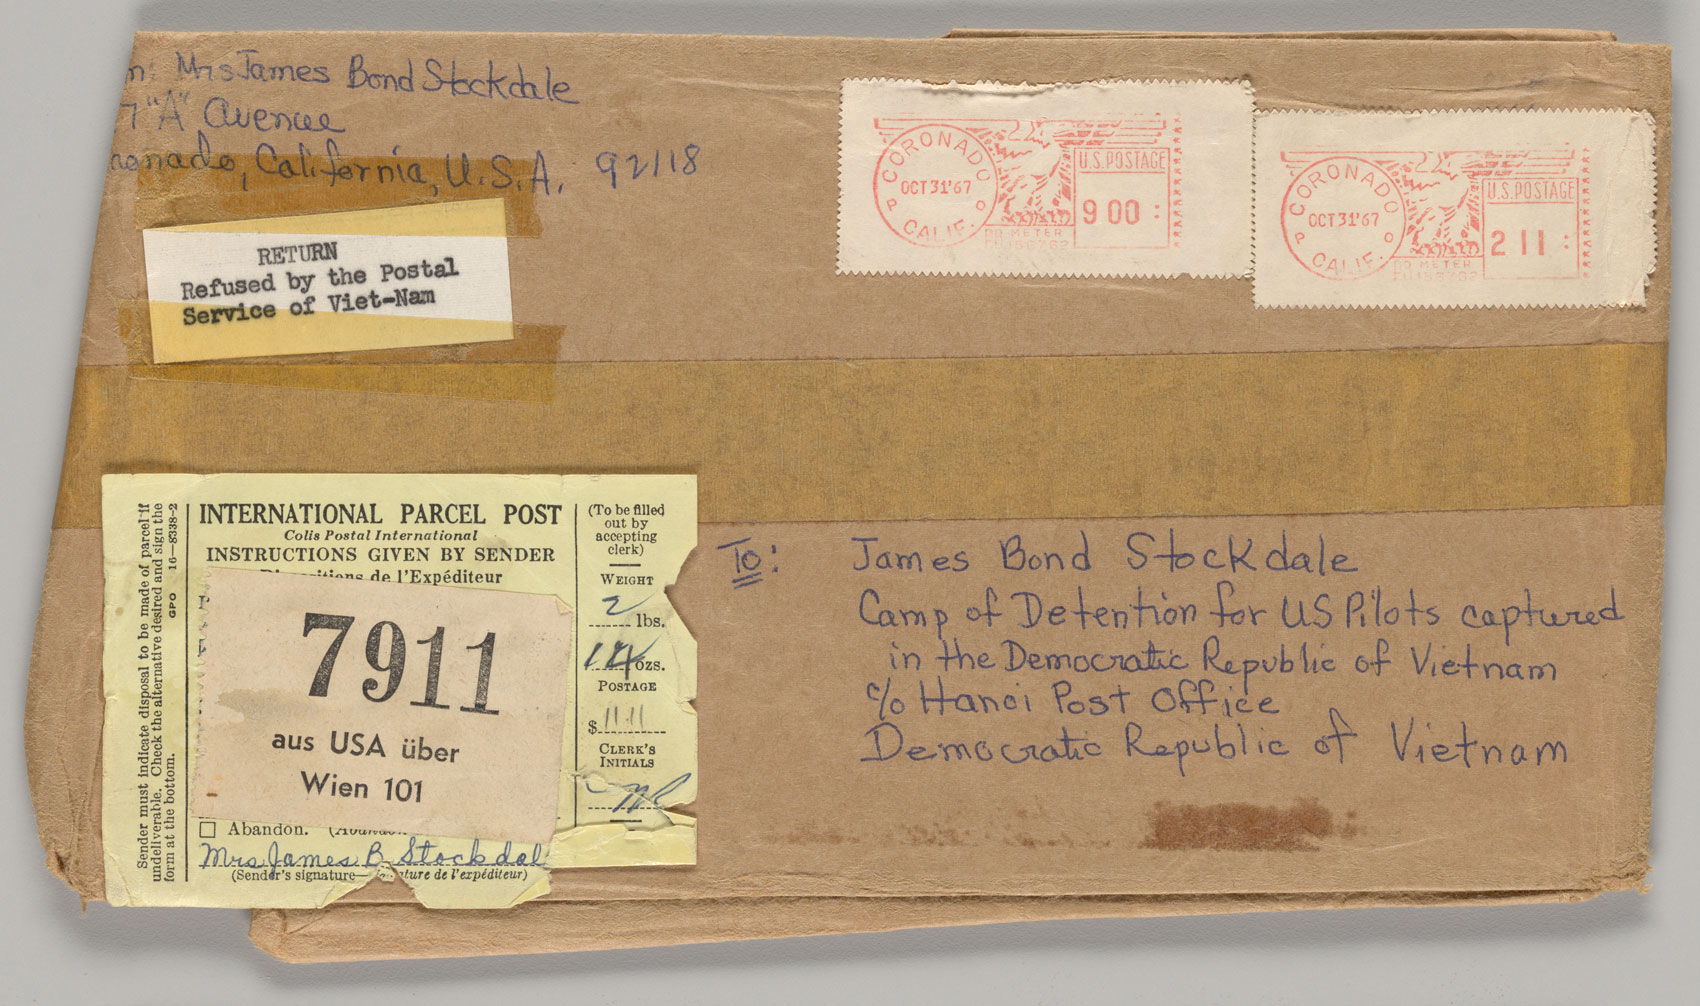 Mrs James Bond Stockdale
7 "A" Avenue
California, U.S.A. 92118
RETURN
Refused by the Postal
Service of Viet-Nam
CORONADO
OCT 31 '67
CALIF.
U.S. POSTAGE
9 00
PB METER
CORONADO
OCT 31 '67
CALIF.
U.S. POSTAGE
2 11
PB METER
Sender must indicate disposal to be made of parcel if
undeliverable. Check the alternative desired and sign the
form at the bottom.
GPO 16—8338-2
INTERNATIONAL PARCEL POST
Colis Postal International
INSTRUCTIONS GIVEN BY SENDER
de l'Expéditeur
7911
aus USA über
Wien 101
Abandon.
Mrs James B Stockdal
(Sender's signature— de l'expéditeur)
(To be filled
out by
accepting
clerk)
WEIGHT
2 lbs.
14 ozs.
POSTAGE
$ 11.11
CLERK'S
INITIALS
To:
James Bond Stockdale
Camp of Detention for US Pilots captured
in the Democratic Republic of Vietnam
c/o Hanoi Post Office
Democratic Republic of Vietnam